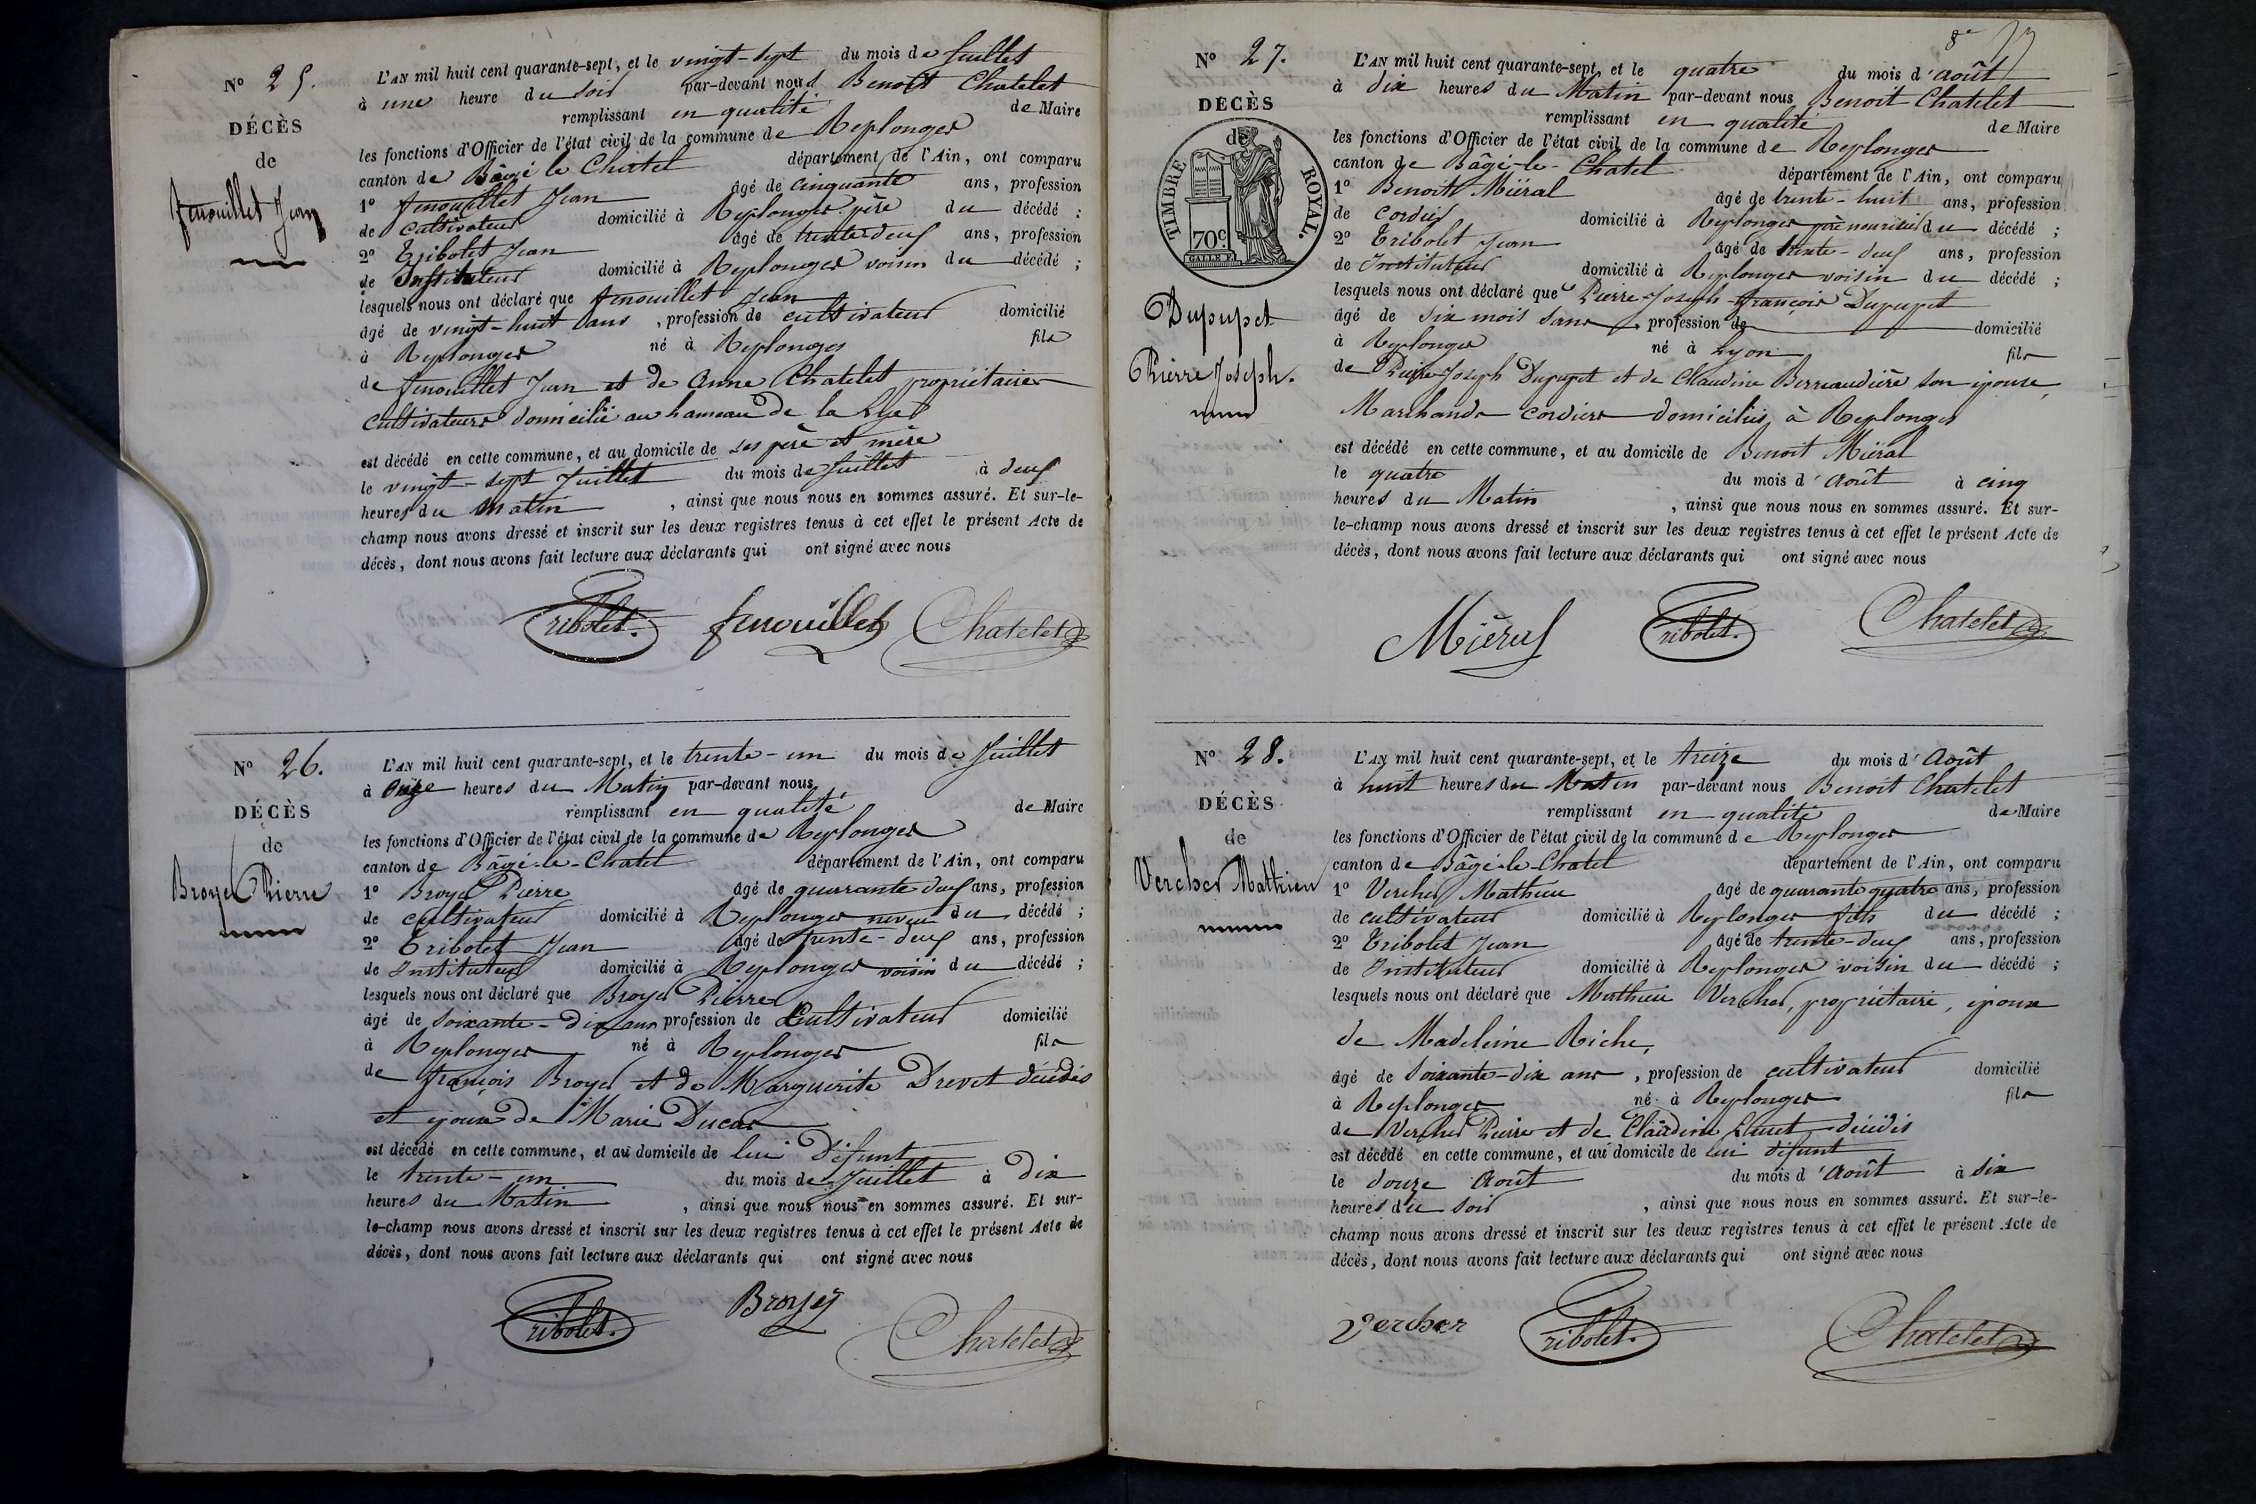 N° 25.
DÉCÈS
de
fenouillet Jean
L'AN mil huit cent quarante-sept, et le vingt-sept du mois de Juillet
à une heure du soir par-devant nous Benoît Chatelet
remplissant en qualité de Maire
les fonctions d'Officier de l'état civil de la commune de Replonges
canton de Bâgé le Chatel département de l'Ain, ont comparu
1° fenouillet Jean âgé de cinquante ans, profession
de cultivateur domicilié à Replonges père du décédé ;
2° Tribolet Jean âgé de trente-deux ans, profession
de Instituteur domicilié à Replonges voisin du décédé ;
lesquels nous ont déclaré que fenouillet Jean
âgé de vingt-huit ans, profession de cultivateur domicilié
à Replonges né à Replonges fils
de fenouillet Jean et de Anne Chatelet propriétaires
cultivateurs domicilié au hameau de la
est décédé en cette commune, et au domicile de ses père et mère
le vingt-sept Juillet du mois de Juillet à deux
heures du matin, ainsi que nous nous en sommes assuré. Et sur-le-
champ nous avons dressé et inscrit sur les deux registres tenus à cet effet le présent Acte de
décès, dont nous avons fait lecture aux déclarants qui ont signé avec nous
Tribolet. fenouillet Chatelet
N° 26.
DÉCÈS
de
Broyer Pierre
L'AN mil huit cent quarante-sept, et le trente-un du mois de Juillet
à onze heures du Matin par-devant nous
remplissant en qualité de Maire
les fonctions d'Officier de l'état civil de la commune de Replonges
canton de Bâgé-le-Chatel département de l'Ain, ont comparu
1° Broyer Pierre âgé de quarante deux ans, profession
de cultivateur domicilié à Replonges neveu du décédé ;
2° Tribolet Jean âgé de trente-deux ans, profession
de Instituteur domicilié à Replonges voisin du décédé ;
lesquels nous ont déclaré que Broyer Pierre
âgé de soixante-dix ans profession de Cultivateur domicilié
à Replonges né à Replonges fils
de françois Broyer et de Marguerite Drevet décédés
et époux de Marie Ducas
est décédé en cette commune, et au domicile de lui défunt
le trente-un du mois de Juillet à dix
heures du Matin, ainsi que nous nous en sommes assuré. Et sur-
le-champ nous avons dressé et inscrit sur les deux registres tenus à cet effet le présent Acte de
décès, dont nous avons fait lecture aux déclarants qui ont signé avec nous
Tribolet. Broyer Chatelet
8e
N° 27.
DÉCÈS
de
TIMBRE ROYAL.
70c
Dupupet
Pierre Joseph.
L'AN mil huit cent quarante-sept, et le quatre du mois d'Août
à dix heures du Matin par-devant nous Benoit Chatelet
remplissant en qualité de Maire
les fonctions d'Officier de l'état civil de la commune de Replonges
canton de Bâgé-le-Chatel département de l'Ain, ont comparu
1° Benoit Miéral âgé de trente-huit ans, profession
de cordier domicilié à Replonges père nouricier du décédé ;
2° Tribolet Jean âgé de trente-deux ans, profession
de Instituteur domicilié à Replonges voisin du décédé ;
lesquels nous ont déclaré que Pierre-Joseph-françois Dupupet
âgé de six mois sans profession de domicilié
à Replonges né à Lyon fils
de Pierre-Joseph Dupupet et de Claudine Bernaudière son épouse,
Marchands cordiers domiciliés à Replonges
est décédé en cette commune, et au domicile de Benoit Miéral
le quatre du mois d'Août à cinq
heures du Matin, ainsi que nous nous en sommes assuré. Et sur-
le-champ nous avons dressé et inscrit sur les deux registres tenus à cet effet le présent Acte de
décès, dont nous avons fait lecture aux déclarants qui ont signé avec nous
Tribolet. Chatelet
N° 28.
DÉCÈS
de
Vercher Mathieu
L'AN mil huit cent quarante-sept, et le treize du mois d'Août
à huit heures du Matin par-devant nous Benoit Chatelet
remplissant en qualité de Maire
les fonctions d'Officier de l'état civil de la commune de Replonges
canton de Bâgé-le-Chatel département de l'Ain, ont comparu
1° Vercher Mathieu âgé de quarante quatre ans, profession
de cultivateur domicilié à Replonges fils du décédé ;
2° Tribolet Jean âgé de trente-deux ans, profession
de Instituteur domicilié à Replonges voisin du décédé ;
lesquels nous ont déclaré que Mathieu Vercher, propriétaire, époux
de Madeleine Riche,
âgé de soixante-dix ans, profession de cultivateur domicilié
à Replonges né à Replonges fils
de Vercher Pierre et de Claudine décédés
est décédé en cette commune, et au domicile de lui défunt
le douze Août du mois d'Août à six
heures du soir, ainsi que nous nous en sommes assuré. Et sur-le-
champ nous avons dressé et inscrit sur les deux registres tenus à cet effet le présent Acte de
décès, dont nous avons fait lecture aux déclarants qui ont signé avec nous
Vercher Tribolet. Chatelet